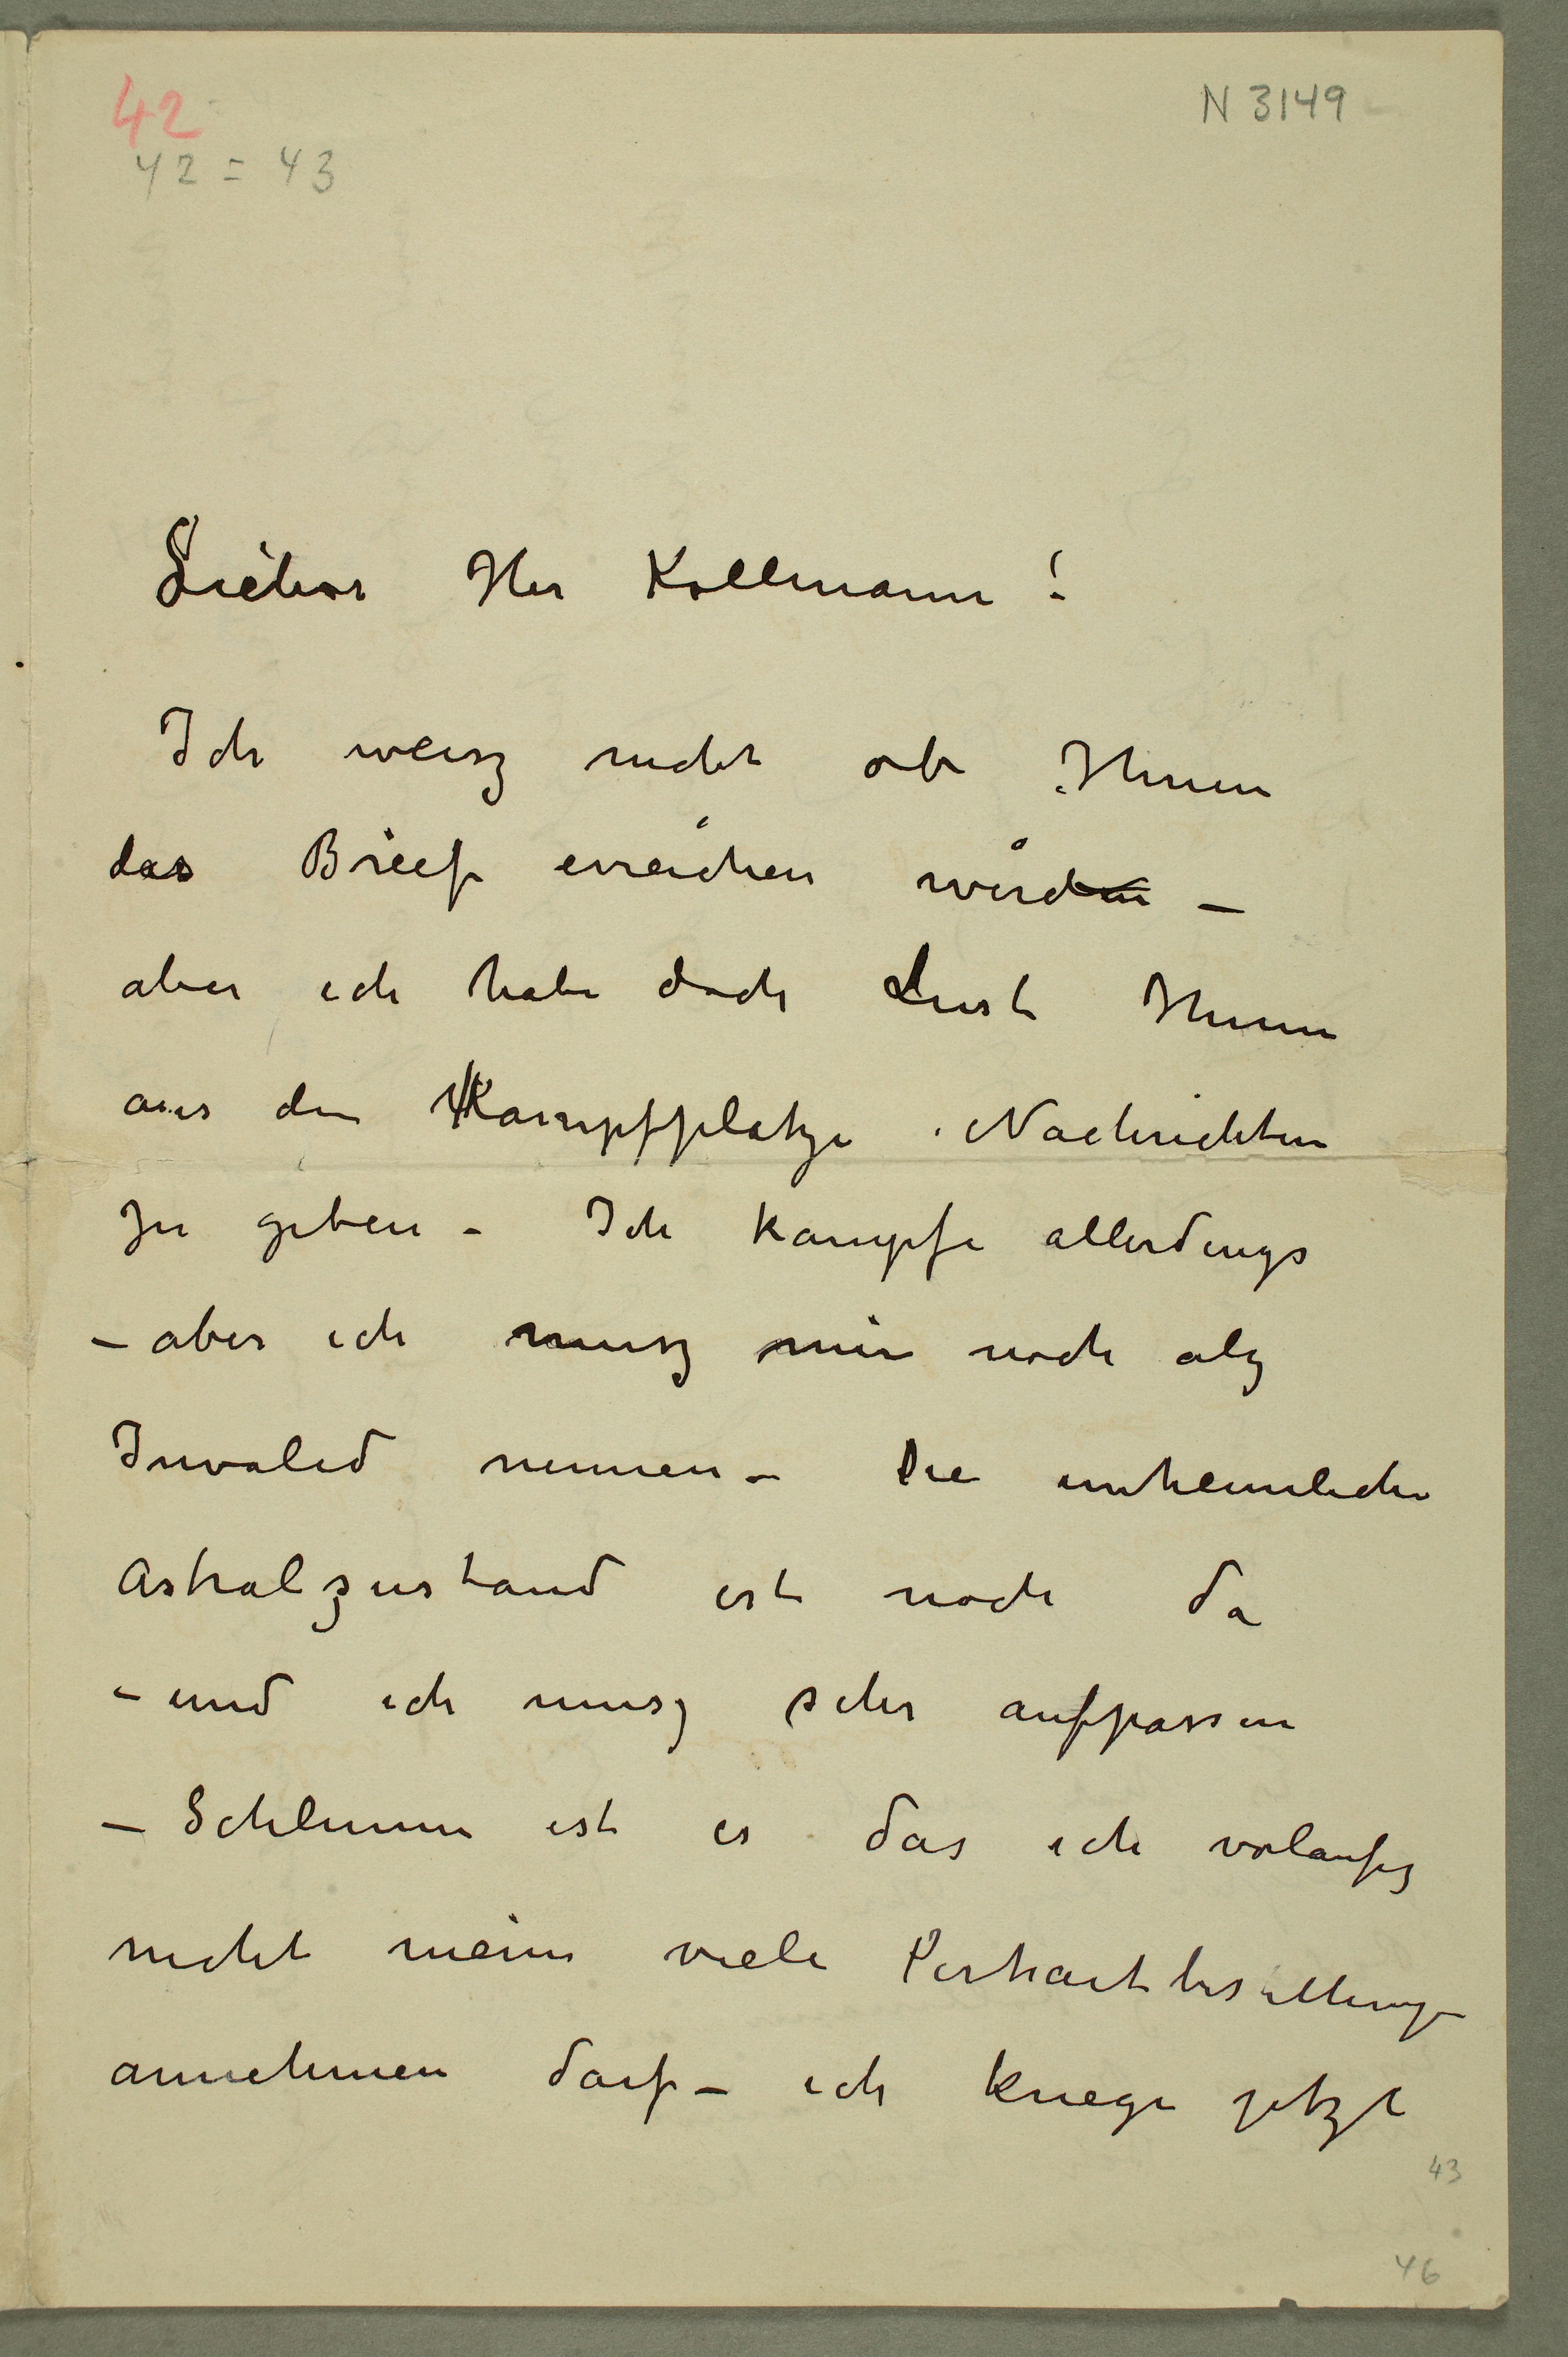 42
N 3149
42 = 43
Lieber Her Kollmann!
Ich weisz nicht ob Ihnen
das Brief erreichen wird –
aber ich habe doch Lust Ihnen
aus den Kampfplatze Nachrichten
zu geben – Ich kampfe allerdings
– aber ich musz mir noch alz
Invalid nennen – Die unheimliche
Astralzustand ist noch da
– und ich musz sehr aufpassen
– Schlimm ist es das ich volaufig
nicht meine viele Portraitbestellungen
annehmen darf – ich kriege jetzt
43
46